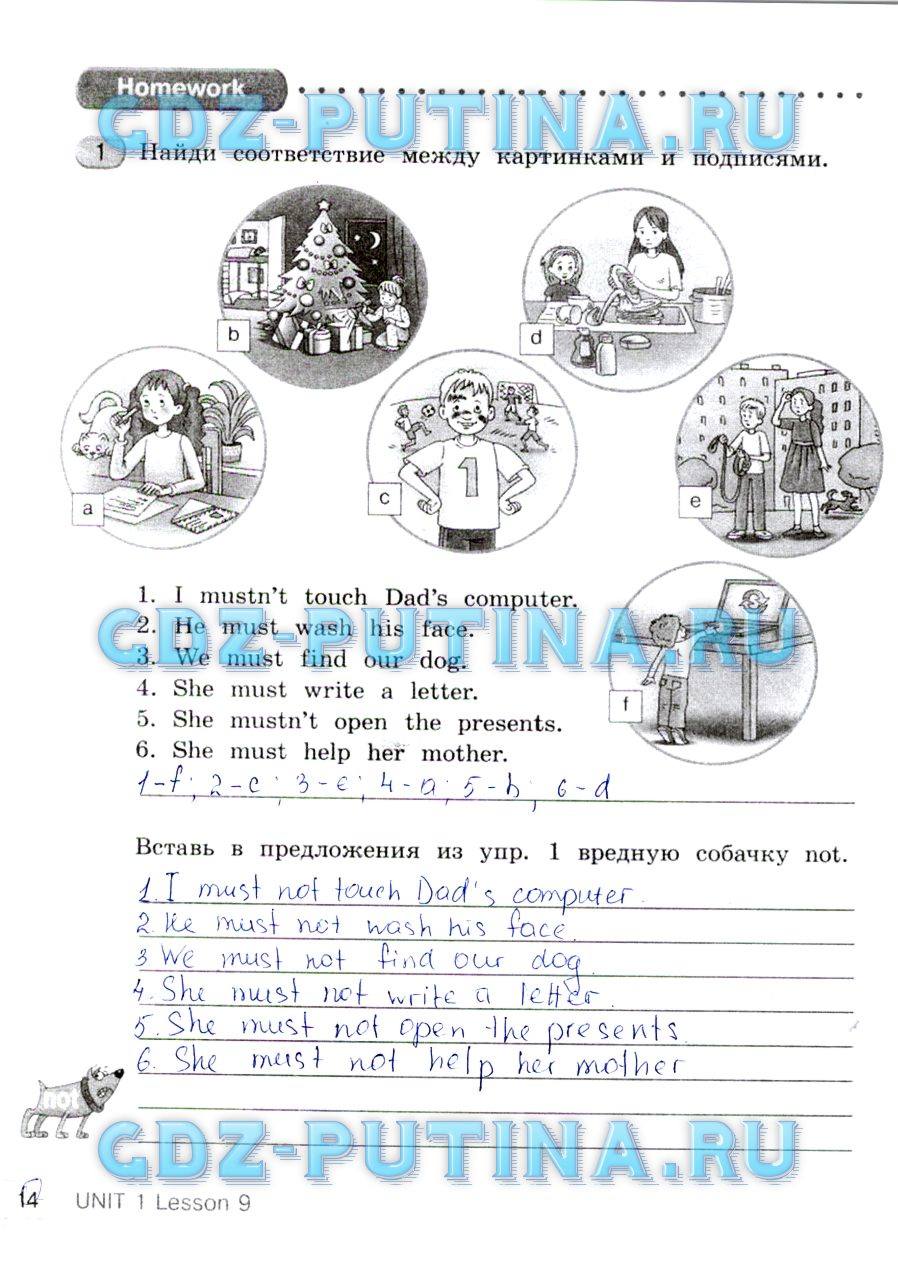 Homework
GDZ-PUTINA.RU
1 Найди соответствие между картинками и подписями.
b
d
a
c
e
f
1. I mustn't touch Dad's computer.
GDZ-PUTINA.RU
2. He must wash his face.
3. We must find our dog.
4. She must write a letter.
5. She mustn't open the presents.
6. She must help her mother.
1-f; 2-c; 3-e; 4-a; 5-b; 6-d
Вставь в предложения из упр. 1 вредную собачку not.
1. I must not touch Dad's computer.
2. He must not wash his face.
3 We must not find our dog.
4. She must not write a letter.
5. She must not open the presents.
6. She must not help her mother
not
GDZ-PUTINA.RU
14 UNIT 1 Lesson 9